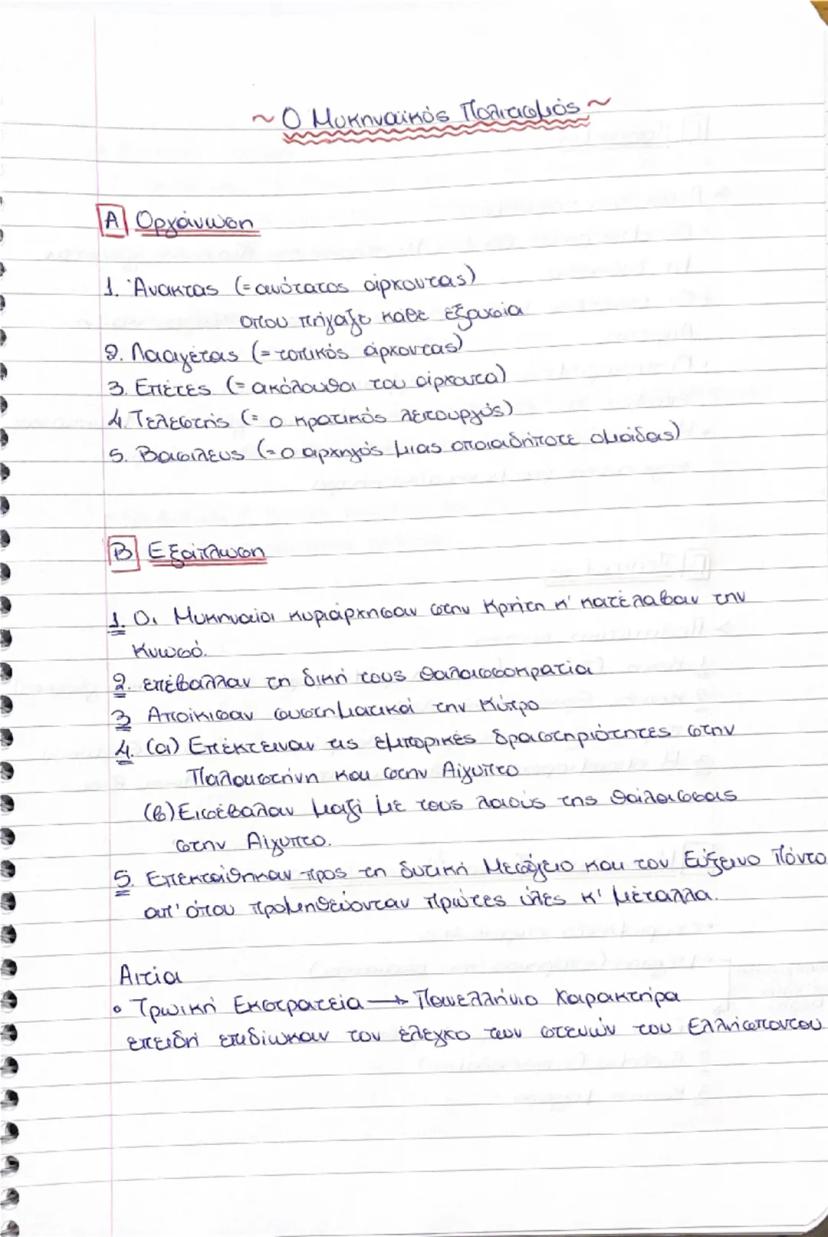 ~ Ο Μυκηναϊκός Πολιτισμός ~
Α Οργάνωση
1. Άνακτας (= ανώτατος άρχοντας)
οπου πήγαζε καθε εξουσία
2. Λααγέτας (= τοπικός άρχοντας)
3. Επέτες (= ακόλουθοι του άρχοντα)
4. Τελεστής (= ο κρατικός λειτουργός)
5. Βασιλευς (= ο αρχηγός μιας οποιαδήποτε ομάδας)
Β Εξάπλωση
1. Οι Μυκηναίοι κυριάρχησαν στην Κρήτη κ' κατέλαβαν την
Κνωσό.
2. επέβαλλαν τη δική τους θαλασσοκρατία
3 Αποίκισαν συστηματικά την Κύπρο
4. (α) Επέκτειναν τις εμπορικές δραστηριότητες στην
Παλαιστήνη και στην Αίγυπτο
(β) Εισέβαλαν μαζί με τους λαούς της θάλασσας
στην Αίγυπτο.
5. Επεκτάθηκαν προς τη δυτική Μεσόγειο και τον Εύξεινο Πόντο
απ' όπου προμηθεύονταν πρώτες ύλες κ' μέταλλα.
Αιτία
• Τρωική Εκστρατεία → Πανελλήνιο Χαρακτήρα
επειδή επιδίωκαν τον έλεγχο των στενών του Ελλήσποντου